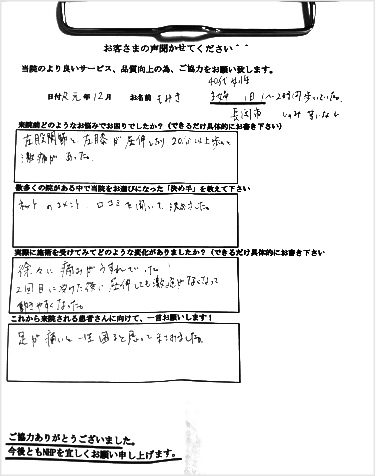 お客さまの声聞かせてください^^
当院のより良いサービス、品質向上の為、ご協力をお願い致します。
40代 女性
日付 R元年12月 お名前 もみき
1日 1〜2時間歩いていた。
長岡市
来院前どのようなお悩みでお困りでしたか？（できるだけ具体的にお書き下さい）
左股関節と左膝が屈伸したり20分以上歩くと
激痛があった。
数多くの院がある中で当院をお選びになった「決め手」を教えて下さい
ネットのコメント、口コミを聞いて決めました。
実際に施術を受けてみてどのような変化がありましたか？（できるだけ具体的にお書き下さい
徐々に痛みがうすれていった。
2回目に受けた後に屈伸しても激痛がなくなって
動きやすくなった。
これから来院される患者さんに向けて、一言お願いします！
足が痛いと一生困ると思って
ご協力ありがとうございました。
今後ともNHPを宜しくお願い申し上げます。